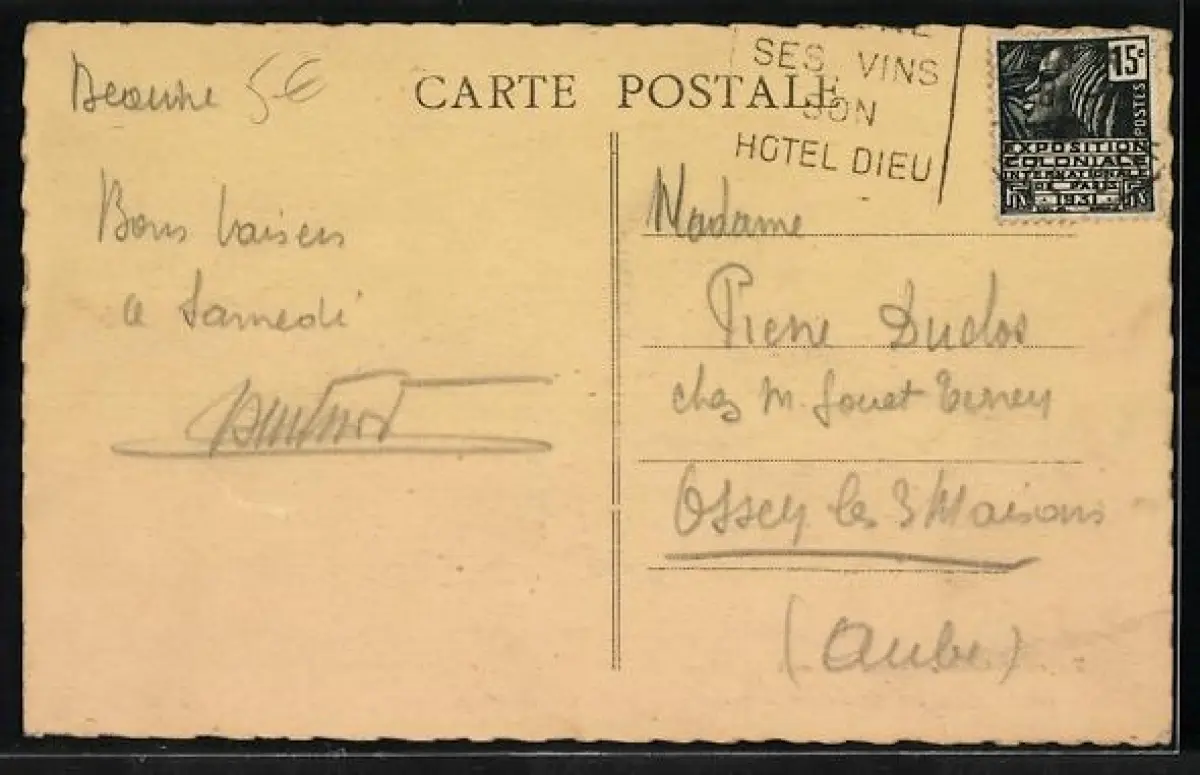 Beaune 5€
CARTE POSTALE
SES VINS
SON
HOTEL DIEU
15c
POSTES
EXPOSITION
COLONIALE
INTERNATIONALE
DE PARIS
1931
Bons baisers
a Samedi
Madame
Pierre Duclos
chez M. Jouet
Ossey les 3 Maisons
(Aube)